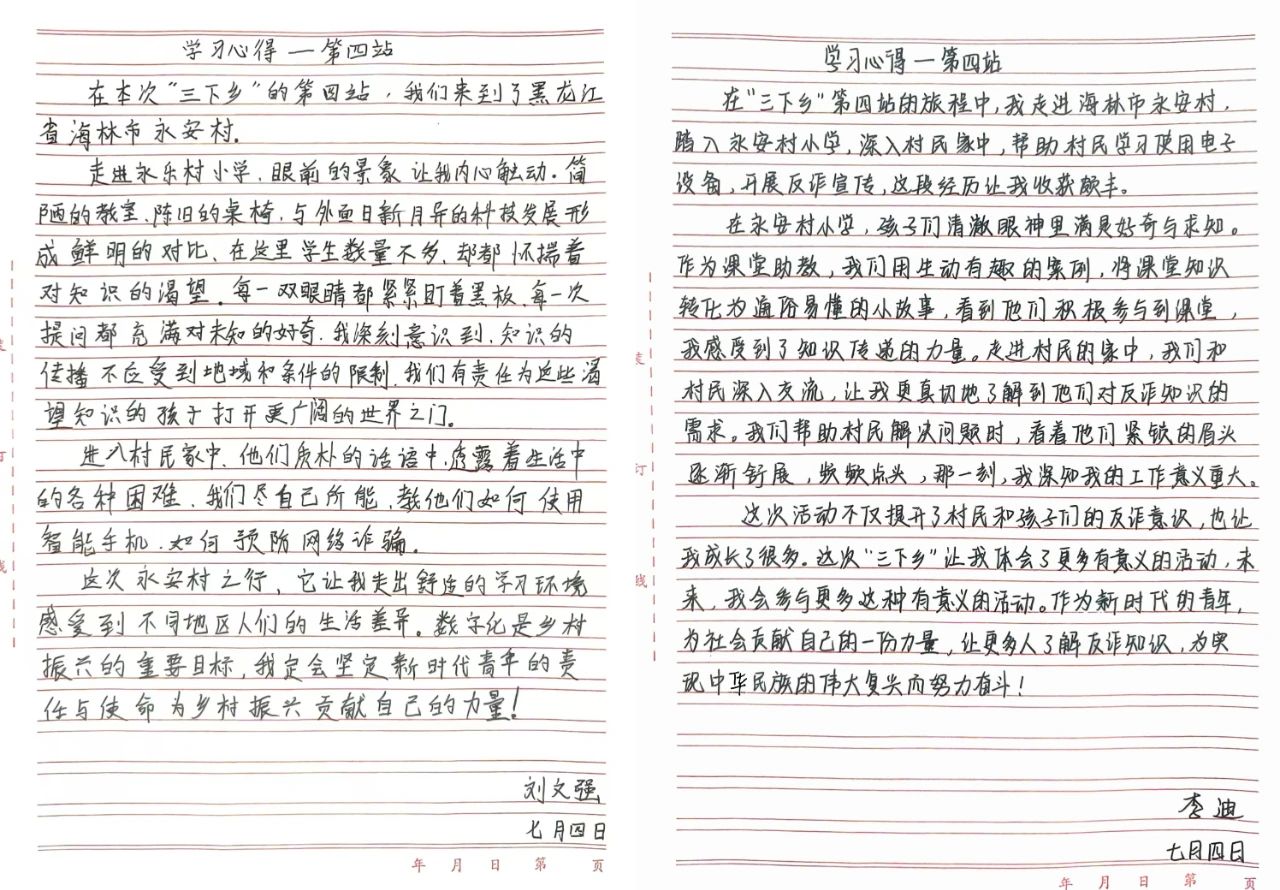 学习心得 — 第四站
在本次“三下乡”的第四站，我们来到了黑龙江
省海林市永安村.
走进永乐村小学，眼前的景象让我内心触动.简
陋的教室、陈旧的桌椅，与外面日新月异的科技发展形
成鲜明的对比，在这里学生数量不多，却都怀揣着
对知识的渴望.每一双眼睛都紧紧盯着黑板，每一次
提问都充满对未知的好奇.我深刻意识到，知识的
传播不应受到地域和条件的限制，我们有责任为这些渴
望知识的孩子打开更广阔的世界之门。
进入村民家中，他们质朴的话语中，透露着生活中
的各种困难，我们尽自己所能，教他们如何使用
智能手机，如何预防网络诈骗。
这次永安村之行，它让我走出舒适的学习环境
感受到不同地区人们的生活差异。数字化是乡村
振兴的重要目标，我定会坚定新时代青年的责
任与使命为乡村振兴贡献自己的力量！
刘文强
七月四日
年 月 日 第 页
装
订
线
学习心得 — 第四站
在“三下乡”第四站的旅程中，我走进海林市永安村，
踏入永安村小学，深入村民家中，帮助村民学习使用电子
设备，开展反诈宣传，这段经历让我收获颇丰。
在永安村小学，孩子们清澈眼神里满是好奇与求知。
作为课堂助教，我们用生动有趣的案例，将课堂知识
转化为通俗易懂的小故事，看到他们积极参与到课堂，
我感受到了知识传递的力量。走进村民的家中，我们和
村民深入交流，让我更真切地了解到他们对反诈知识的
需求。我们帮助村民解决问题时，看着他们紧锁的眉头
逐渐舒展，频频点头，那一刻，我深知我的工作意义重大。
这次活动不仅提升了村民和孩子们的反诈意识，也让
我成长了很多。这次“三下乡”让我体会了更多有意义的活动，未
来，我会参与更多这种有意义的活动。作为新时代的青年，
为社会贡献自己的一份力量，让更多人了解反诈知识，为实
现中华民族的伟大复兴而努力奋斗！
李迪
七月四日
年 月 日 第 页
装
订
线